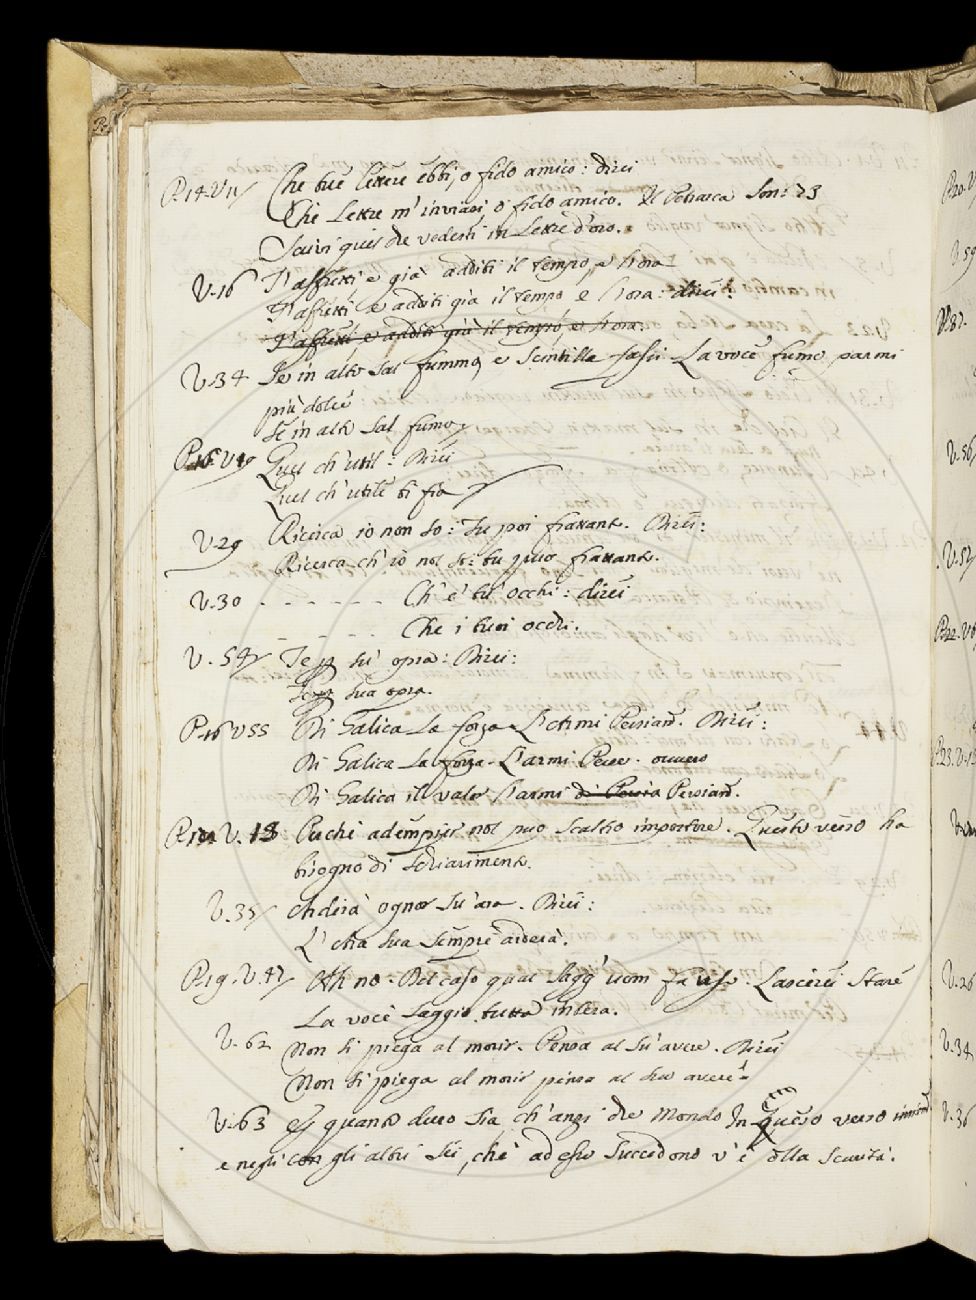 P. 14. V. 11 Che tue lettere ebbi, o fido amico: direi
Che Lettre m'inviasi, o fido amico. Il Petrarca Son: 23
Scrivi quel che vedesti in Lettre d'oro.
V. 16 T'affretti e già additi il tempo, e l'ora
T'affretti e additi già il tempo e l'ora: direi:
T'affretti e additi già il tempo e l'ora:
V. 34 Se in alto sal fummo, e scintilla La voce fumo parmi
più dolce
Se in alto sal fumo
V. 19 Quel ch'util: Direi
Quel ch'utile ti fia
V. 29 Ricerca io non so: Tu poi frattant. Direi:
Ricerca ch'io nol so: tu frattant.
V. 30 - - - - - - Ch'e' tu' occhi: direi
- - - - Che i tuoi occhi.
V. 54 su' opra: Direi:
sua opra.
P. 16 V 55 Di Galica La forza L'armi Persiane. Direi:
Di Galica La forza L'armi ovvero
Di Galica il valor L'armi di Persia Persiane.
V. 18 Perché adempier nol può scaltro impostore. Questo verso ha
bisogno di schiarimento.
V. 35 ognor su' ara. Direi:
L' sua sempre arderà.
P. 19. V. 47 Ah no. Del caso qual sagg' uom fa uso. Lascerei stare
La voce saggio tutta intera.
V. 62 Non si piega al morir. Pensa al su' avere. Direi
Non si piega al morir pensa al suo avere
V. 63 quanto duro sia ch'anzi che mondo In questo verso
e negli con gli altri sei, che adesso succedono v'è della scurità.